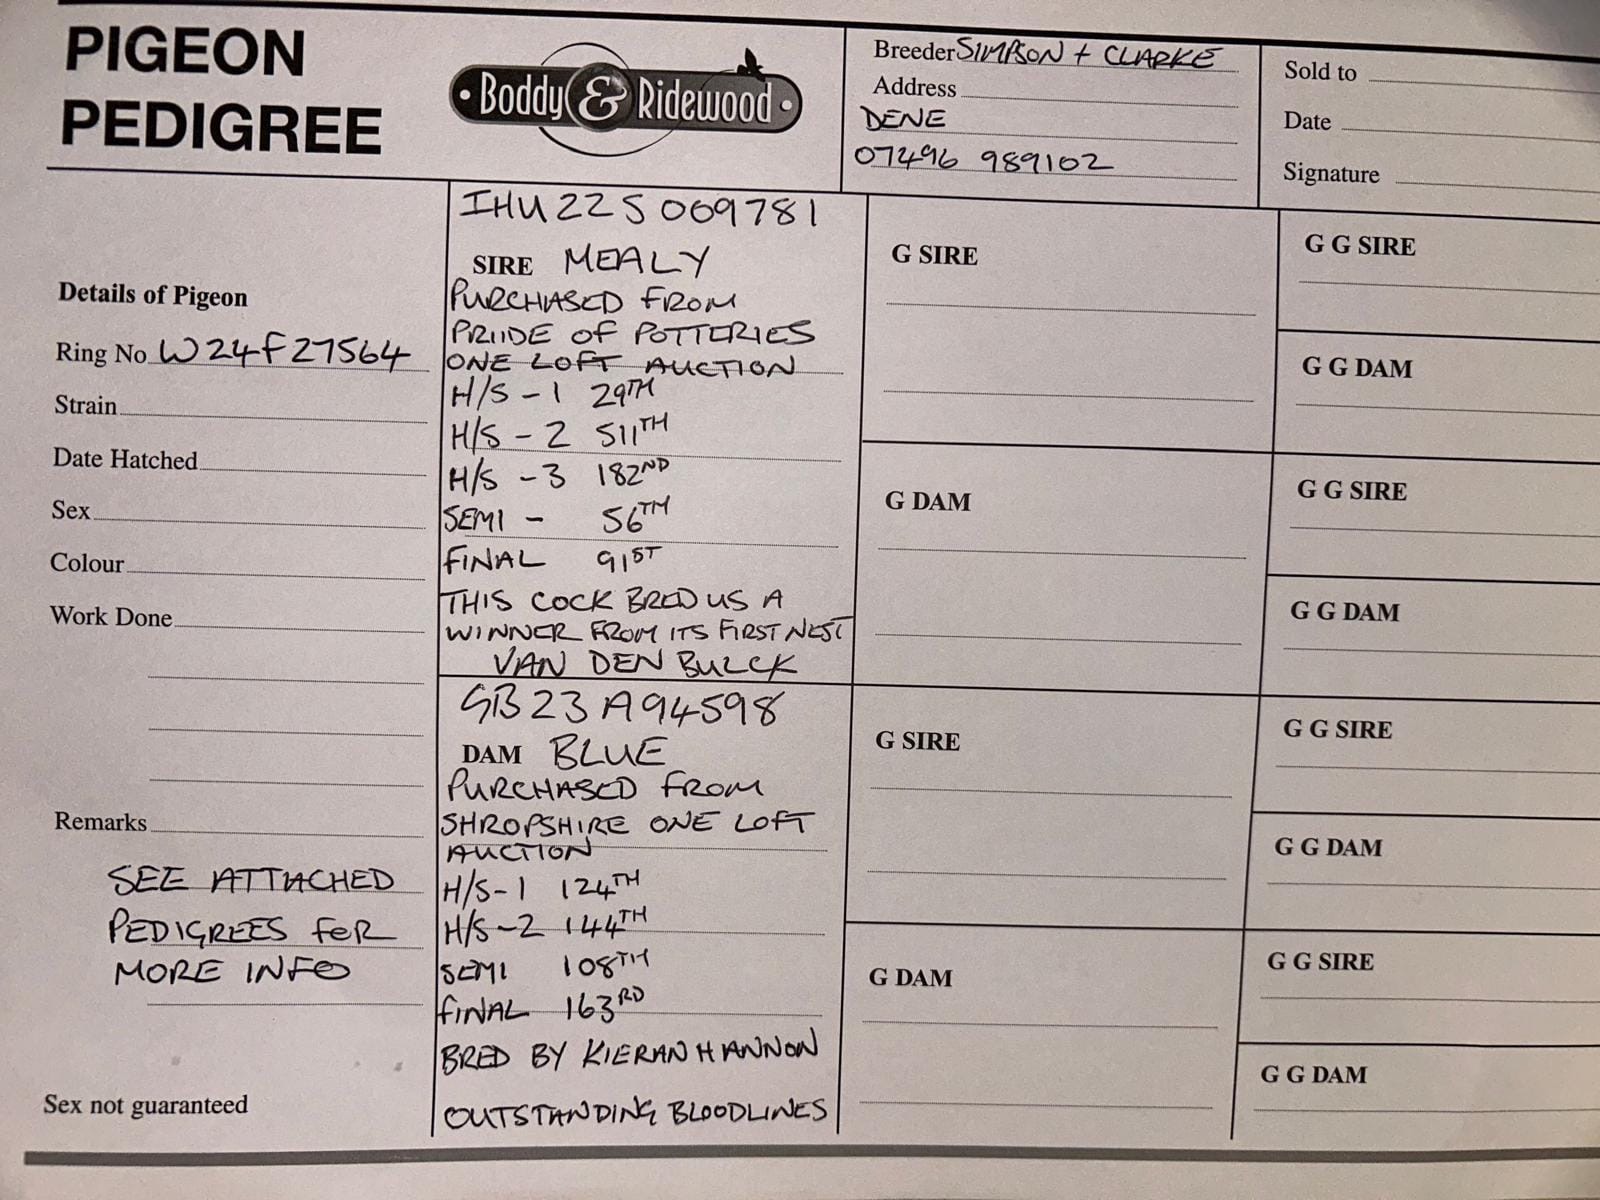 PIGEON
PEDIGREE
• Boddy & Ridewood •
Breeder SIMPSON + CLARKE
Address
DENE
07496 989102
Sold to
Date
Signature
Details of Pigeon
Ring No W24F27564
Strain
Date Hatched
Sex
Colour
Work Done
Remarks
SEE ATTACHED
PEDIGREES FOR
MORE INFO
Sex not guaranteed
IHU 22 S 069781
SIRE MEALY
PURCHASED FROM
PRIIDE OF POTTERIES
ONE LOFT AUCTION
H/S - 1 29TH
H/S - 2 511TH
H/S - 3 182ND
SEMI - 56TH
FINAL 91ST
THIS COCK BRED US A
WINNER FROM ITS FIRST NEST
VAN DEN BULCK
GB 23 A94598
DAM BLUE
PURCHASED FROM
SHROPSHIRE ONE LOFT
AUCTION
H/S-1 124TH
H/S-2 144TH
SEMI 108TH
FINAL 163RD
BRED BY KIERAN HANNON
OUTSTANDING BLOODLINES
G SIRE
G DAM
G SIRE
G DAM
G G SIRE
G G DAM
G G SIRE
G G DAM
G G SIRE
G G DAM
G G SIRE
G G DAM